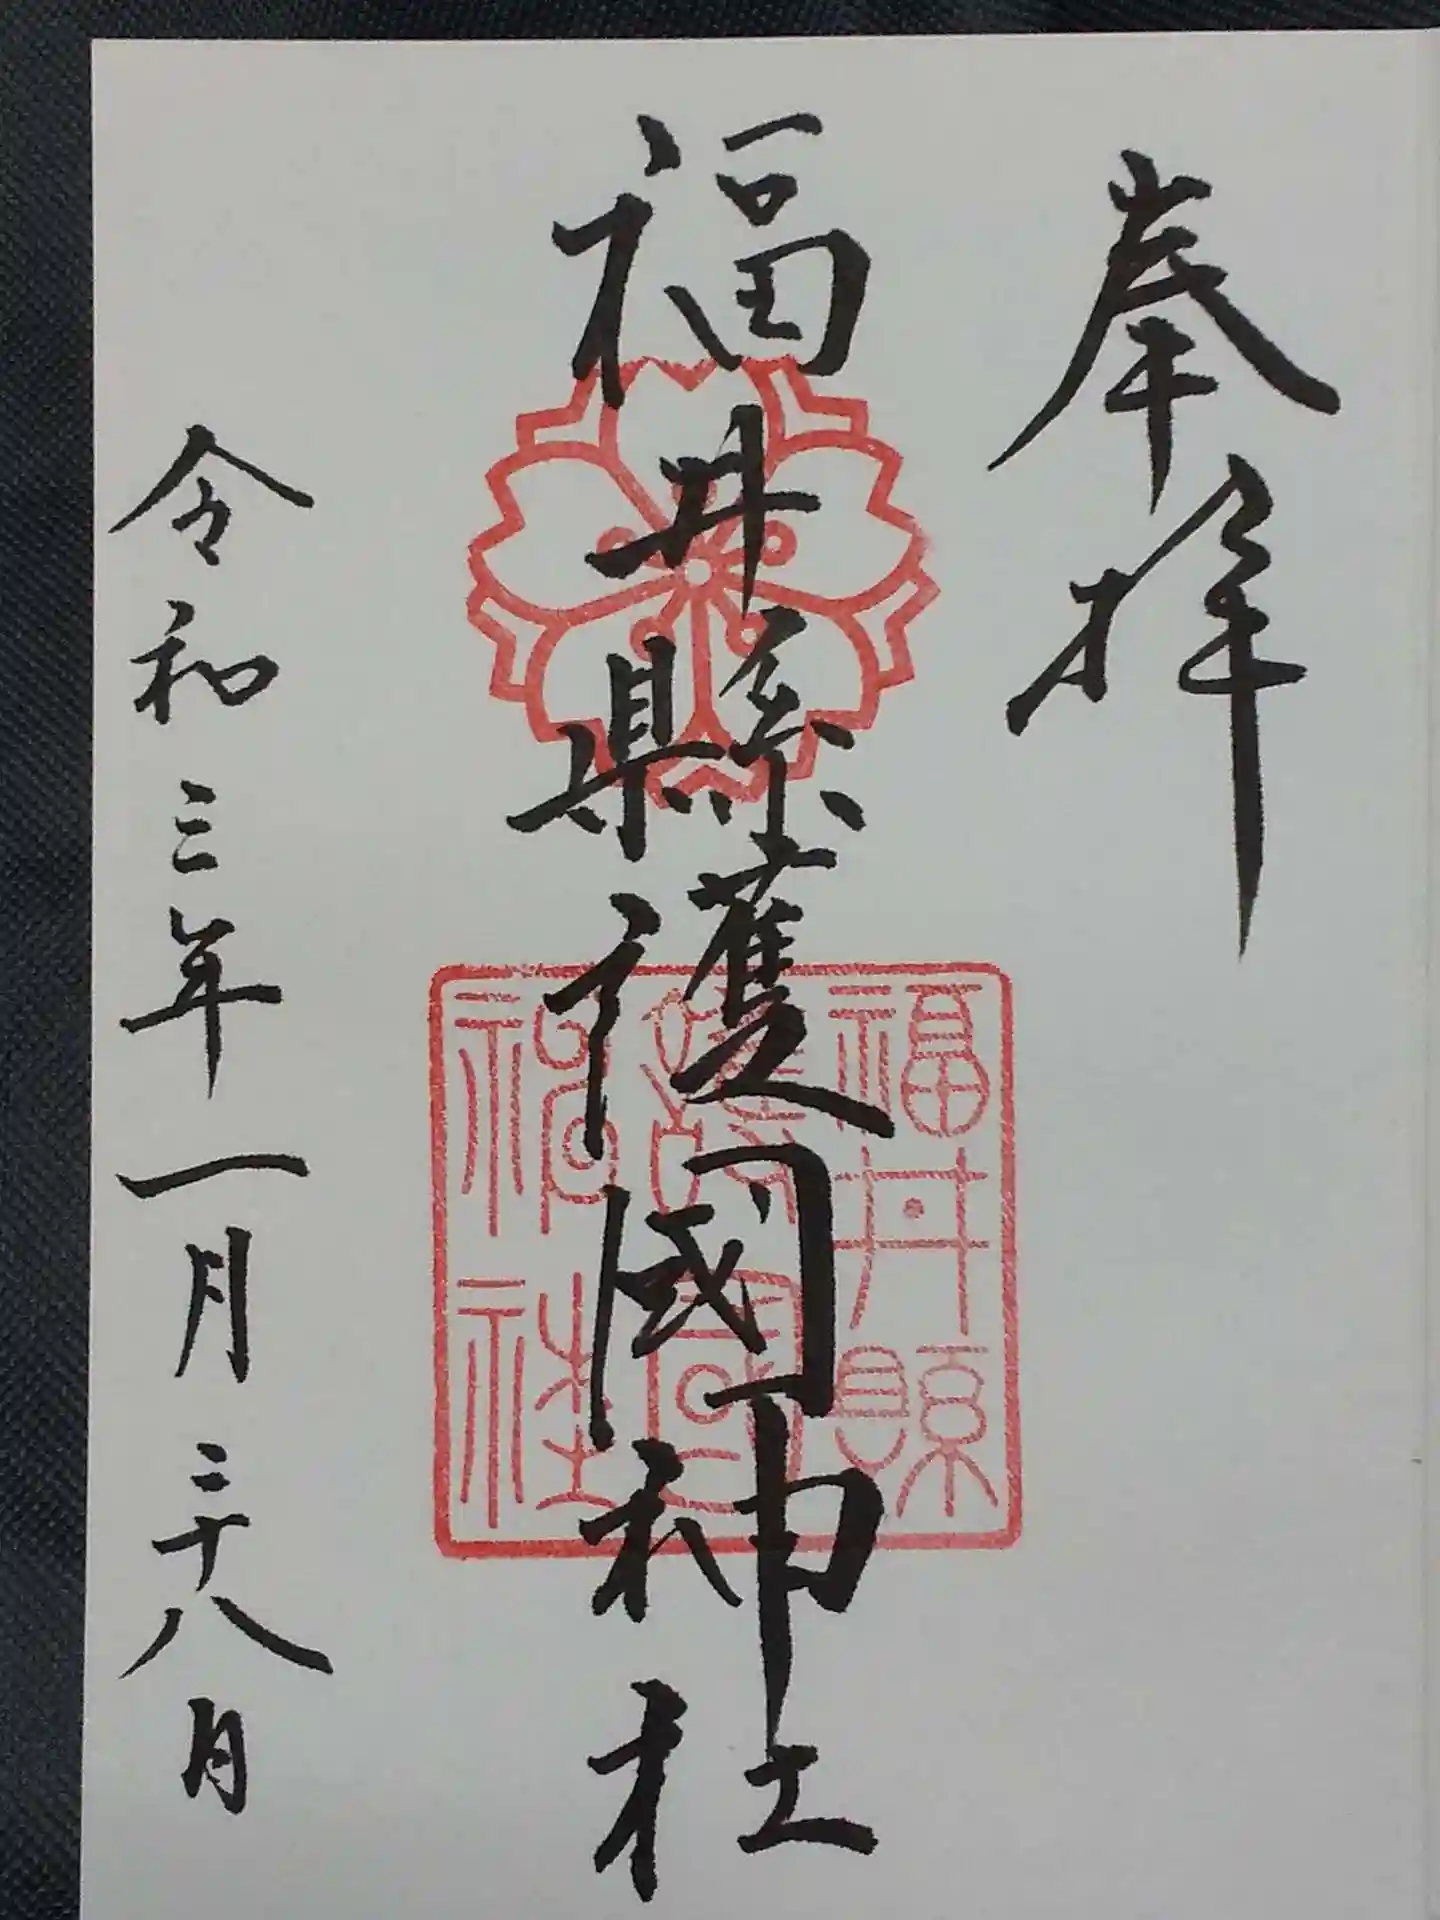 奉拝
福井縣護國神社
令和三年一月二十八日
福井縣
護國
神社